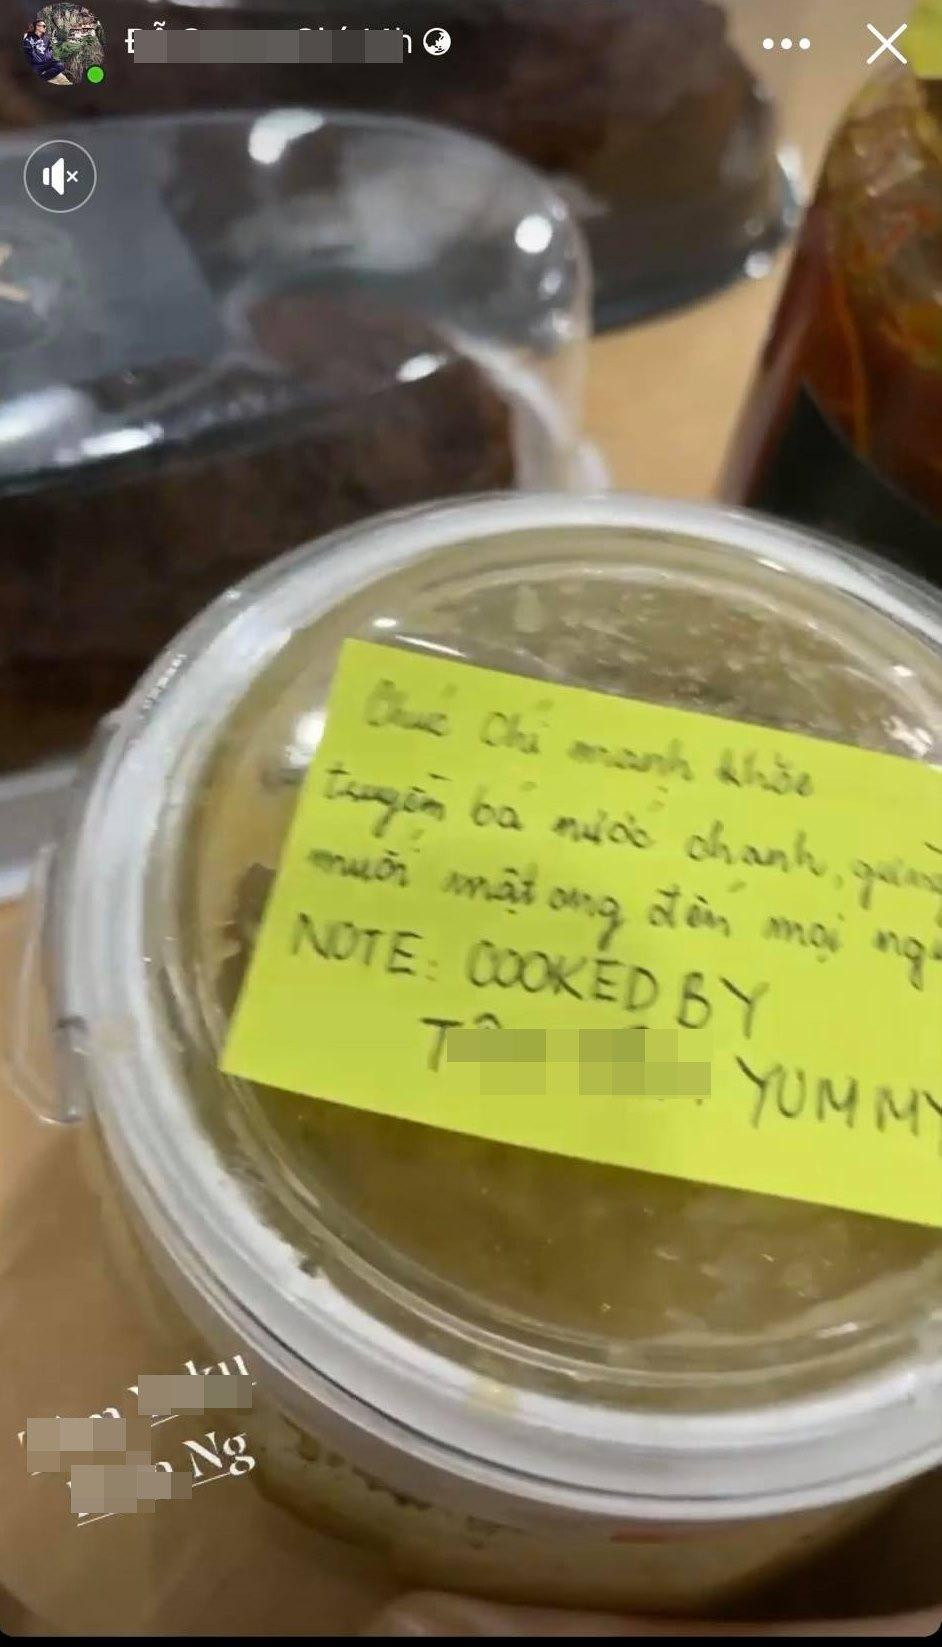 Chúc Chí mạnh khỏe
truyền bá nước chanh, gừng
muối mật ong đến mọi
NOTE: COOKED BY
YUMMY
Ng